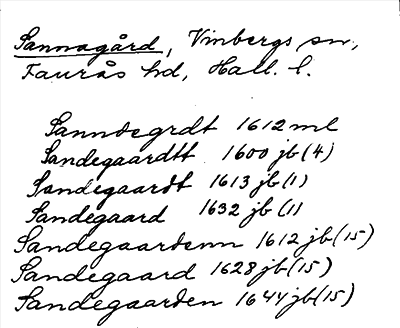 Sannagård, Vinbergs sn,
Faurås hd, Hall. l.
Sanndegrdt 1612 ml
Sandegaardtt 1600 jb (4)
Sandegaardt 1613 jb (1)
Sandegaard 1632 jb (1)
Sandegaardenn 1612 jb (15)
Sandegaard 1628 jb (15)
Sandegaarden 1644 jb (15)